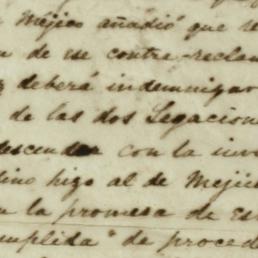 Mejico añadió que se
de se contra-reclam
deberá indemnizar
de las dos Legacion
descender con la inv
dino hizo al de Mejic
la promesa de Es
mplida" de proced